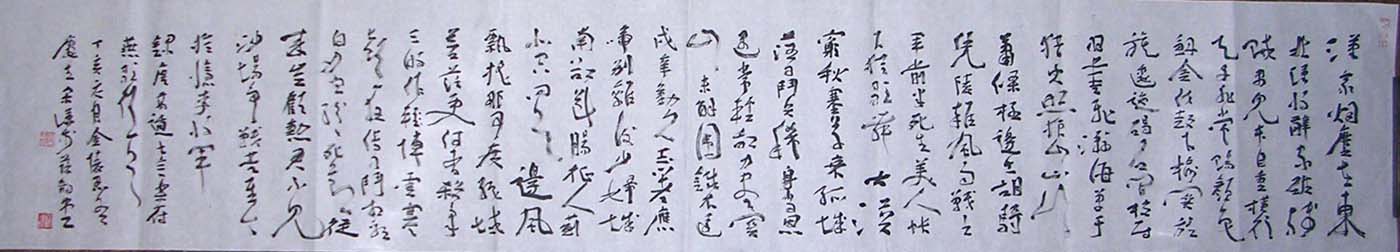 漢家烟塵在東
北漢將辭家破殘
賊男兒本自重橫行
天子非常賜顏色
摐金伐鼓下榆關旌
旆逶迤碣石間校尉
羽書飛瀚海單于
獵火照狼山山川
蕭條極邊土胡騎
憑陵雜風雨戰士
軍前半死生美人帳
下猶歌舞大漠
窮秋塞草 孤城
落日鬥兵稀身當恩
遇常輕敵力盡關
山未解圍鐵衣遠
戍辛勤久玉箸應
啼別離後少婦城
南欲斷腸征人薊
北空回首邊風
飄飄那可度絕域
蒼茫更何有殺氣
三時作陣雲寒
聲一夜傳刁斗相看
白刃血紛紛死節從
來豈顧勳君不見
沙場爭戰苦至今
猶憶李將軍
錄唐高適七言
燕歌行
丁亥夏月金